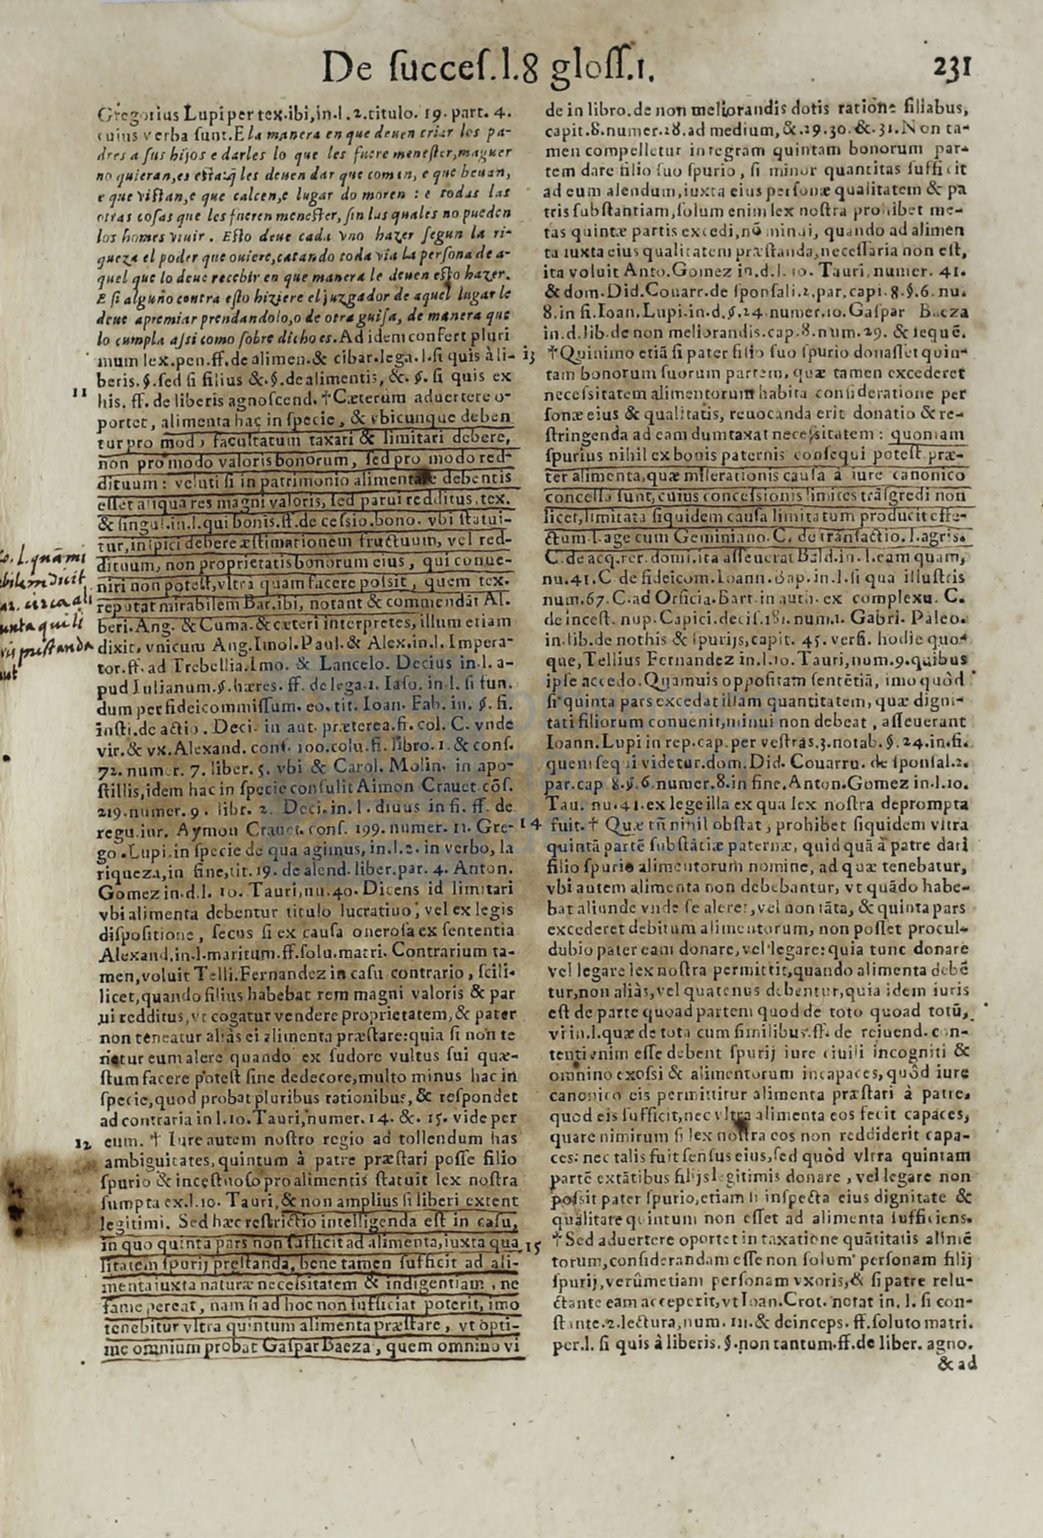 De succes.l.8 gloss.1.
231
Gregorius Lupi per tex.ibi,in.l.2.titulo.19.part.4.
cuius verba sunt.E la manera en que deuen criar los pa-
dres a sus hijos e darles lo que les fuere menester,maguer
no quieran,es esta:q̃ les deuen dar que coman, e que beuan,
e que vistan,e que calcen,e lugar do moren : e todas las
otras cosas que les fueren menester, sin las quales no pueden
los homes viuir . Esto deue cada vno hazer segun la ri-
queza el poder que ouiere,catando toda via la persona de a-
quel que lo deue recebir en que manera le deuen esto hazer.
E si alguno contra esto hiziere el juzgador de aquel lugar le
deue apremiar prendandolo,o de otra guisa, de manera que
lo cumpla assi como sobre dicho es.Ad idem confert pluri
mum lex.pen.ff.de alimen.& cibar.lega.l.si quis à li-
beris.§.sed si filius &.§.de alimentis, &c. §. si quis ex
11
his. ff. de liberis agnoscend. †Cæterum aduertere o-
portet, alimenta hac in specie, & vbicunque deben
tur pro modo facultatum taxari & limitari debere,
non pro modo valoris bonorum, sed pro modo red-
dituum : veluti si in patrimonio alimentare debentis
esset aliqua res magni valoris, sed parui redditus.tex.
& singul.in.l.qui bonis.ff.de cessio.bono. vbi statui-
tur,inspici debere æstimationem fructuum, vel red-
dituum, non proprietatis bonorum eius, qui conue-
niri non potest,vltra quam facere possit, quem tex.
reputat mirabilem Bar.ibi, notant & commendāt Al.
beri.Ang. & Cuma.& cæteri interpretes, illum etiam
dixit, vnicum Ang.Imol.Paul.& Alex.in.l.Impera-
tor.ff.ad Trebellia.Imo. & Lancelo. Decius in.l. a-
pud Iulianum.§.hæres. ff. de lega.1. Iaso. in l. si fun.
dum per fideicommissum. eo. tit. Ioan. Fab. in. §. fi.
insti.de actio . Deci. in aut. præterea.fi.col. C. vnde
vir.& vx.Alexand. cons. 100.colu.fi.libro.1.& cons.
72.numer. 7. liber. 5. vbi & Carol. Molin. in apo-
stillis,idem hac in specie consulit Aimon Crauet cōs.
219.numer.9. libr. 2. Deci.in.l.diuus in fi. ff. de
regu.iur. Aymon Crauet. cons. 199. numer. 11. Gre-
go.Lupi.in specie de qua agimus, in.l.2. in verbo, la
riqueza,in fine,tit.19. de alend. liber.par. 4. Anton.
Gomez in.d.l. 10. Tauri,nu.40.Dicens id limitari
vbi alimenta debentur titulo lucratiuo, vel ex legis
dispositione, secus si ex causa onerosa ex sententia
Alexand.in.l.maritum.ff.solu.matri. Contrarium ta-
men,voluit Telli.Fernandez in casu contrario, scili-
licet,quando filius habebat rem magni valoris & par
ui redditus,vt cogatur vendere proprietatem,& pater
non teneatur aliàs ei alimenta præstare:quia si non te
netur eum alere quando ex sudore vultus sui quæ-
stum facere potest sine dedecore,multo minus hac in
specie,quod probat pluribus rationibus, & respondet
ad contraria in l.10.Tauri,numer.14. &. 15. vide per
12
eum. † Iure autem nostro regio ad tollendum has
ambiguitates, quintum à patre præstari posse filio
spurio & incestuoso pro alimentis statuit lex nostra
sumpta ex.l.10. Tauri,& non amplius si liberi extent
legitimi. Sed hæc restrictio intelligenda est in casu,
in quo quinta pars non sufficit ad alimenta,iuxta qua
litatem spurij prestanda, bene tamen sufficit ad ali-
menta iuxta naturæ necessitatem & indigentiam, ne
fame pereat, nam si ad hoc non sufficiat poterit, imo
tenebitur vltra quintum alimenta præstare, vt opti-
me omnium probat Gaspar Baeza, quem omnino vi
de in libro.de non meliorandis dotis ratione filiabus,
capit.8.numer.28.ad medium,&.29.30.&.31.Non ta-
men compelletur integram quintam bonorum par-
tem dare filio suo spurio, si minor quantitas sufficit
ad eum alendum,iuxta eius personæ qualitatem & pa
tris substantiam,solum enim lex nostra prohibet me-
tas quintæ partis excedi,nō minui, quando ad alimen
ta iuxta eius qualitatem præstanda,necessaria non est,
ita voluit Anto.Gomez in.d.l. 10. Tauri. numer. 41.
& dom.Did.Couarr.de sponsali.2.par.capi.8.§.6.nu.
8.in fi.Ioan.Lupi.in.d.§.24.numer.10.Gaspar Baeza
in.d.lib.de non meliorandis.cap.8.num.29. & sequē.
13
†Quinimo etiā si pater filio suo spurio donasset quin-
tam bonorum suorum partem, quæ tamen excederet
necessitatem alimentorum habita consideratione per
sonæ eius & qualitatis, reuocanda erit donatio & re-
stringenda ad eam dumtaxat necessitatem : quoniam
spurius nihil ex bonis paternis consequi potest præ-
ter alimenta,quæ miserationis causa à iure canonico
concessa sunt,cuius concessionis limites trāsgredi non
licet,limitata siquidem causa limitatum producit effe-
ctum.l.age cum Geminiano. C. de transactio.l.agris.
C.de acq.rer.domi.ita asseuerat Bald.in.l.eam quam,
nu.41.C de fideicom.Ioann.Bap.in.l.si qua illustris
num.67.C.ad Orficia.Bart.in auth. ex complexu. C.
de incest. nup.Capici.decis.181.num.1.Gabri. Paleo.
in.lib.de nothis & spurijs,capit.45.versi. hodie quo-
que,Tellius Fernandez in.l.10.Tauri,num.9.quibus
ipse accedo.Quamuis oppositam sentētiā, imo quòd
si quinta pars excedat illam quantitatem, quæ digni-
tati filiorum conuenit,minui non debeat, asseuerant
Ioann.Lupi in rep.cap.per vestras.3.notab.§.24.in.fi.
quem sequi videtur.dom.Did. Couarru. de sponsal.2.
par.cap 8.§.6.numer.8.in fine.Anton.Gomez in.l.10.
Tau. nu.41.ex lege illa ex qua lex nostra deprompta
14
fuit.† Quæ tñ nihil obstat, prohibet siquidem vltra
quintā partē substātiæ paternæ, quid quā à patre dari
filio spurio alimentorum nomine, ad quæ tenebatur,
vbi autem alimenta non debebantur, vt quādo habe-
bat aliunde vnde se aleret,vel non tāta, & quinta pars
excederet debitum alimentorum, non posset procul-
dubio pater eam donare,vel legare:quia tunc donare
vel legare lex nostra permittit,quando alimenta debē
tur,non aliàs,vel quatenus debentur,quia idem iuris
est de parte quoad partem quod de toto quoad totū,
vt in.l.quæ de tota cum similibus.ff. de reiuend. con-
tenti enim esse debent spurij iure ciuili incogniti &
omnino exosi & alimentorum incapaces, quòd iure
canonico eis permittitur alimenta præstari à patre,
quod eis sufficit,nec vltra alimenta eos fecit capaces,
quare nimirum si lex nostra eos non reddiderit capa-
ces: nec talis fuit sensus eius,sed quòd vltra quintam
partē extātibus filijs legitimis donare, vel legare non
possit pater spurio,etiam si inspecta eius dignitate &
qualitate quintum non esset ad alimenta sufficiens.
15
†Sed aduertere oportet in taxatione quātitatis alimē
torum,considerandam esse non solum personam filij
spurij,verùm etiam personam vxoris,& si patre relu-
ctante eam acceperit,vt Ioan.Crot. notat in. l. si con-
stante.2.lectura,num. 111.& deinceps.ff.soluto matri.
per.l. si quis à liberis.§.non tantum.ff.de liber. agno.
& ad